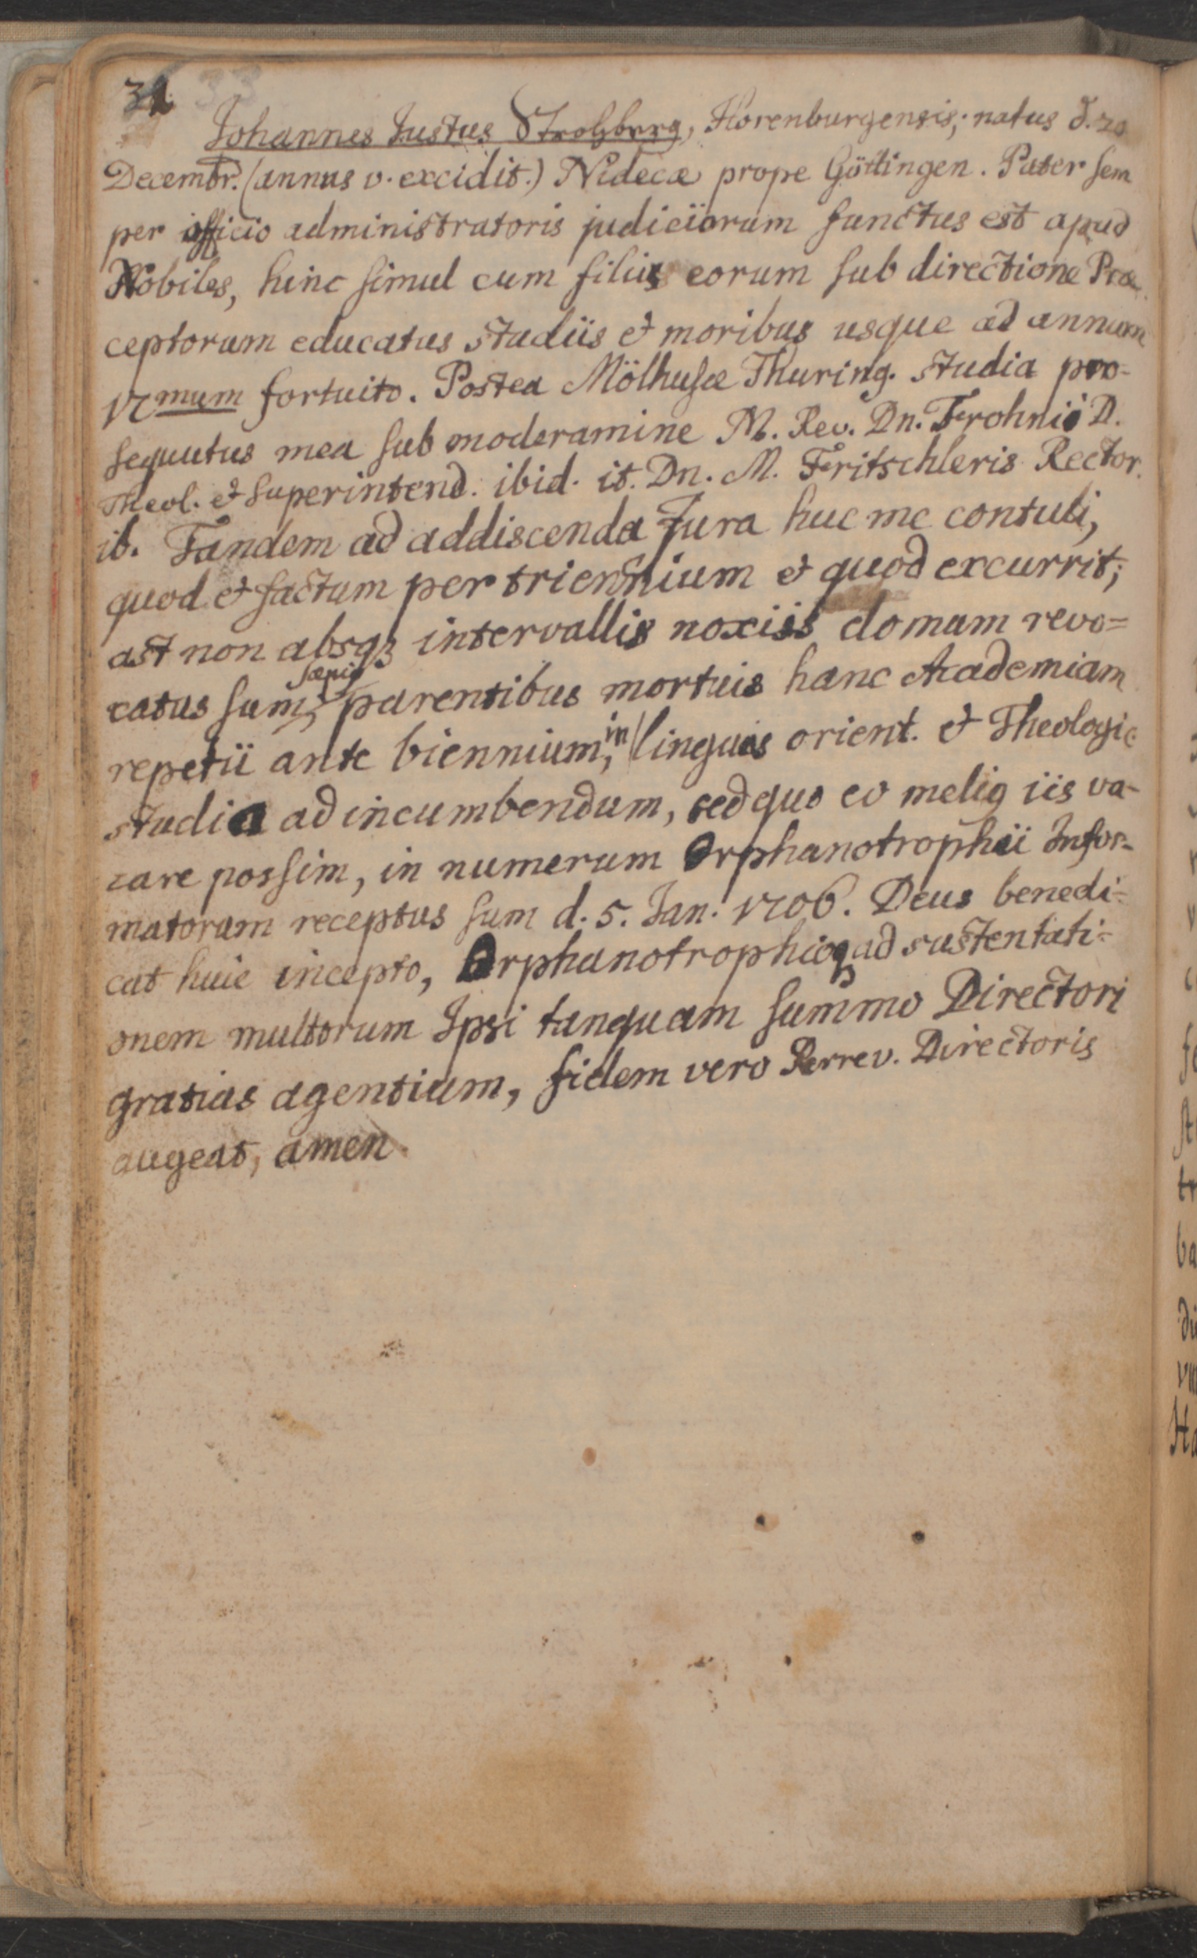 32 33
Johannes Justus Strolzberg, Florenburgensis; natus d. 20
Decembr. (annus v. excidit.) Nidecæ prope Göttingen. Pater sem
per officio administratoris judiciorum functus est apud
Nobiles, hinc simul cum filiis eorum sub directione Præ-
ceptorum educatus studiis & moribus usque ad annum
17mum fortuito. Postea Mölhusæ Thuring. studia pro-
sequutus mea sub moderamine M. Rev. Dn. Frohnii D.
Theol. & Superintend. ibid. it. Dn. M. Fritschleris Rector.
ib. Tandem ad addiscenda Jura huc me contuli,
quod & factum per triennium & quod excurrit;
ast non absqꝫ intervallis noxiis domum revo=
catus sum, sæpiꝰ parentibus mortuis hanc Academiam
repetii ante biennium, in linguis orient. & Theologic
studia ad incumbendum, sed quo eo meliꝰ iis va-
care possim, in numerum Orphanotrophii Infor-
matorum receptus sum d. 5. Jan. 1706. Deus benedi-
cat huic incepto, Orphanotrophioqꝫ ad sustentati-
onem multorum Ipsi tanquam summo Directori
gratias agentium, fidem vero Perrev. Directoris
augeat, amen.